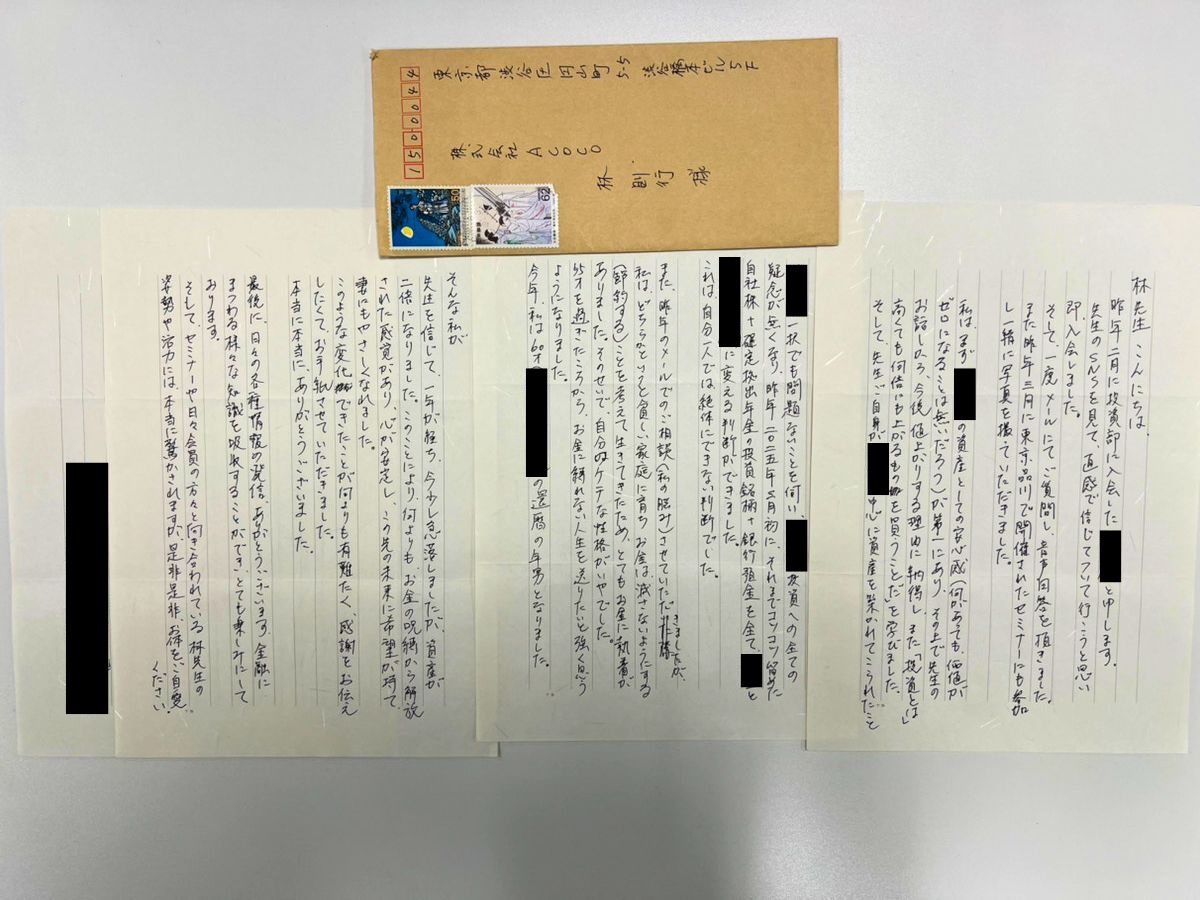 1500044
東京都渋谷区円山町5-5 渋谷橋本ビル5F
株式会社ACOCO
林 則行 様
50
62
林先生 こんにちは、
昨年二月に投資部に入会した と申します。
先生のSNSを見て、直感で信じてついて行こうと思い
即、入会しました。
そして、一度メールにてご質問し、音声回答を頂きました。
また昨年三月に東京品川で開催されたセミナーにも参加
し一緒に写真を撮っていただきました。
私は、まず の資産としての安心感(何があっても、価値が
ゼロになることは無いだろう)が第一にあり、その上で先生の
お話しから、今後値上がりする理由に納得し、また「投資とは」
高くても何倍にも上がるものを買うことだ」を学びました。
そして、先生ご自身が 中心に資産を築かれてこられたこと
一択でも問題ないことを伺い、
疑念が無くなり、昨年二〇二五年三月初に、それまでコツコツ留めた
自社株+確定拠出年金の投資銘柄+銀行預金を全て、 と
に変える判断ができました。
これは、自分一人では絶体にできない判断でした。
投資への全ての
また、昨年のメールでのご相談(私の悩み)させていただきましたが、
私は、どちらかというと貧しい家庭に育ちお金は、減さないようにする
(節約する)ことを考えて生きてきたため、とてもお金に執着が
ありました。そのせいで、自分のケチな性格がいやでした。
55才を過ぎたころから、お金に縛れない人生を送りたいと強く思う
ようになりました。
今年、私は60才 の還暦の年男となりました。
そんな私が
先生を信じて、一年が経ち、今少し急落しましたが、資産が
二倍になりました。このことにより、何よりもお金の呪縛から解放
された感覚があり、心が安定し、この先の未来に希望が持て
妻にもやさしくなれました。
このような変化ができたことが何よりも有難たく、感謝をお伝え
したくて、お手紙させていただきました。
本当に本当に、ありがとうございました。
最後に、日々の各種情報の発信、ありがとうございます。金融に
まつわる様々な知識を吸収することができ、とても楽しみにして
おります。
そして、セミナーや日々会員の方々と向き合われている林先生の
姿勢や活力には、本当に驚かされますが、是非是非、お体をご自愛
ください。